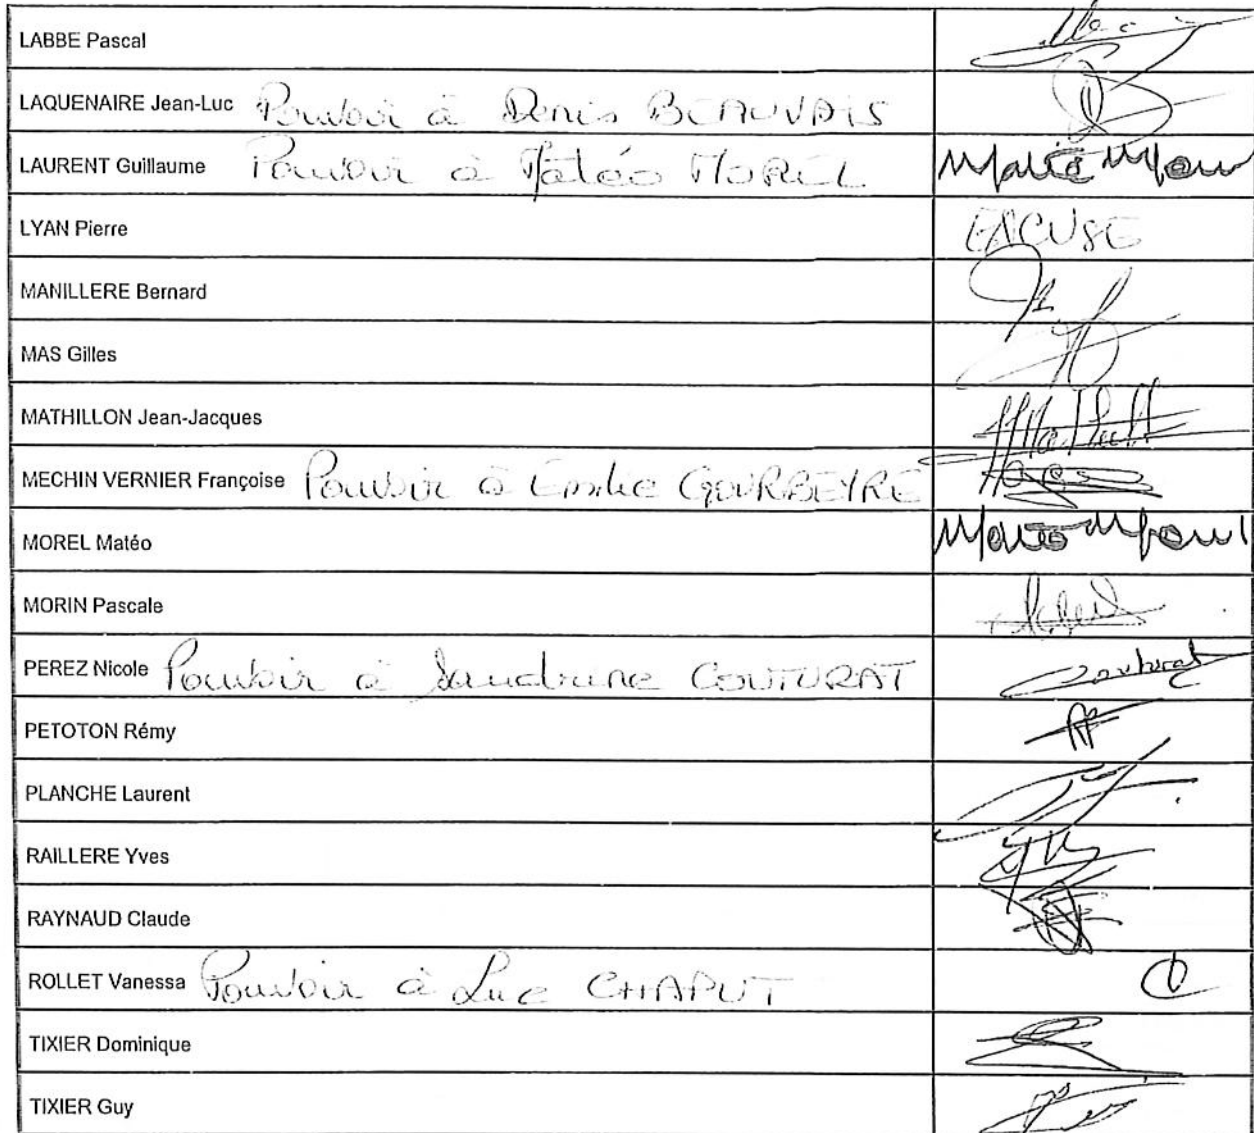 LABBE Pascal
LAQUENAIRE Jean-Luc Pouvoir à Denis BEAUVAIS
LAURENT Guillaume Pouvoir à Matéo MOREL
LYAN Pierre EXCUSE
MANILLERE Bernard
MAS Gilles
MATHILLON Jean-Jacques
MECHIN VERNIER Françoise Pouvoir à Emilie GOURBEYRE
MOREL Matéo
MORIN Pascale
PEREZ Nicole Pouvoir à Sandrine COUTURAT Couturat
PETOTON Rémy
PLANCHE Laurent
RAILLERE Yves
RAYNAUD Claude
ROLLET Vanessa Pouvoir à Luc CHAPUT
TIXIER Dominique
TIXIER Guy